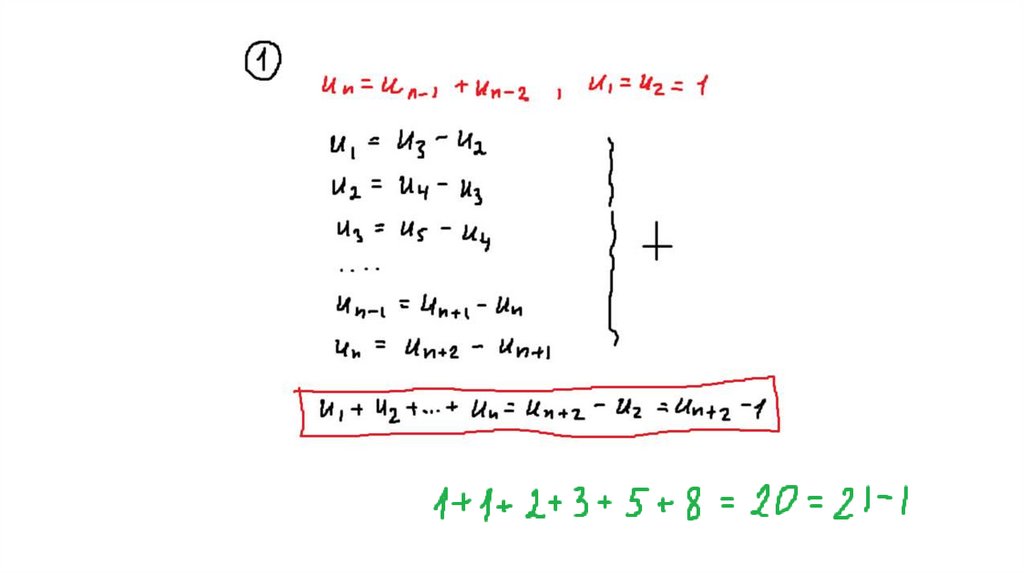 1
uₙ = uₙ₋₁ + uₙ₋₂ , u₁ = u₂ = 1
u₁ = u₃ - u₂
u₂ = u₄ - u₃
u₃ = u₅ - u₄
....
uₙ₋₁ = uₙ₊₁ - uₙ
uₙ = uₙ₊₂ - uₙ₊₁
+
u₁ + u₂ + ... + uₙ = uₙ₊₂ - u₂ = uₙ₊₂ - 1
1 + 1 + 2 + 3 + 5 + 8 = 20 = 21 - 1